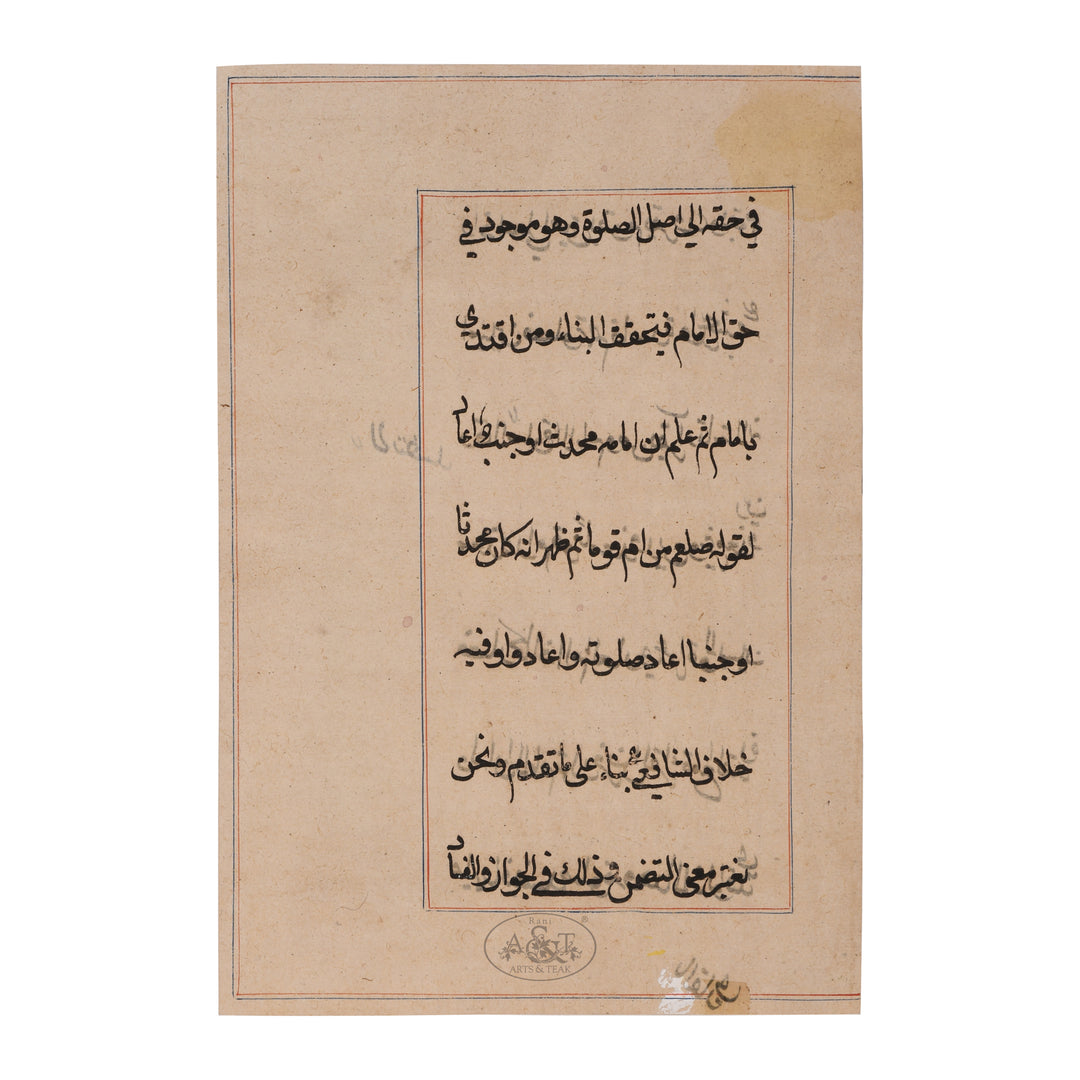 في حقه الي اصل الصلوة وهو موجود في
حق الامام فيتحقق البناء ومن اقتدي
بامام ثم علم ان امامه محدث او جنب اعاد
لقوله صلعم من ام قوما ثم ظهر انه كان محدثا
او جنبا اعاد صلوته واعادوا وفيه
خلاف الشافعي بناء على ما تقدم ونحن
نعتبر معنى التضمن وذلك في الجواز والفساد
Rani
A&T
®
ARTS & TEAK